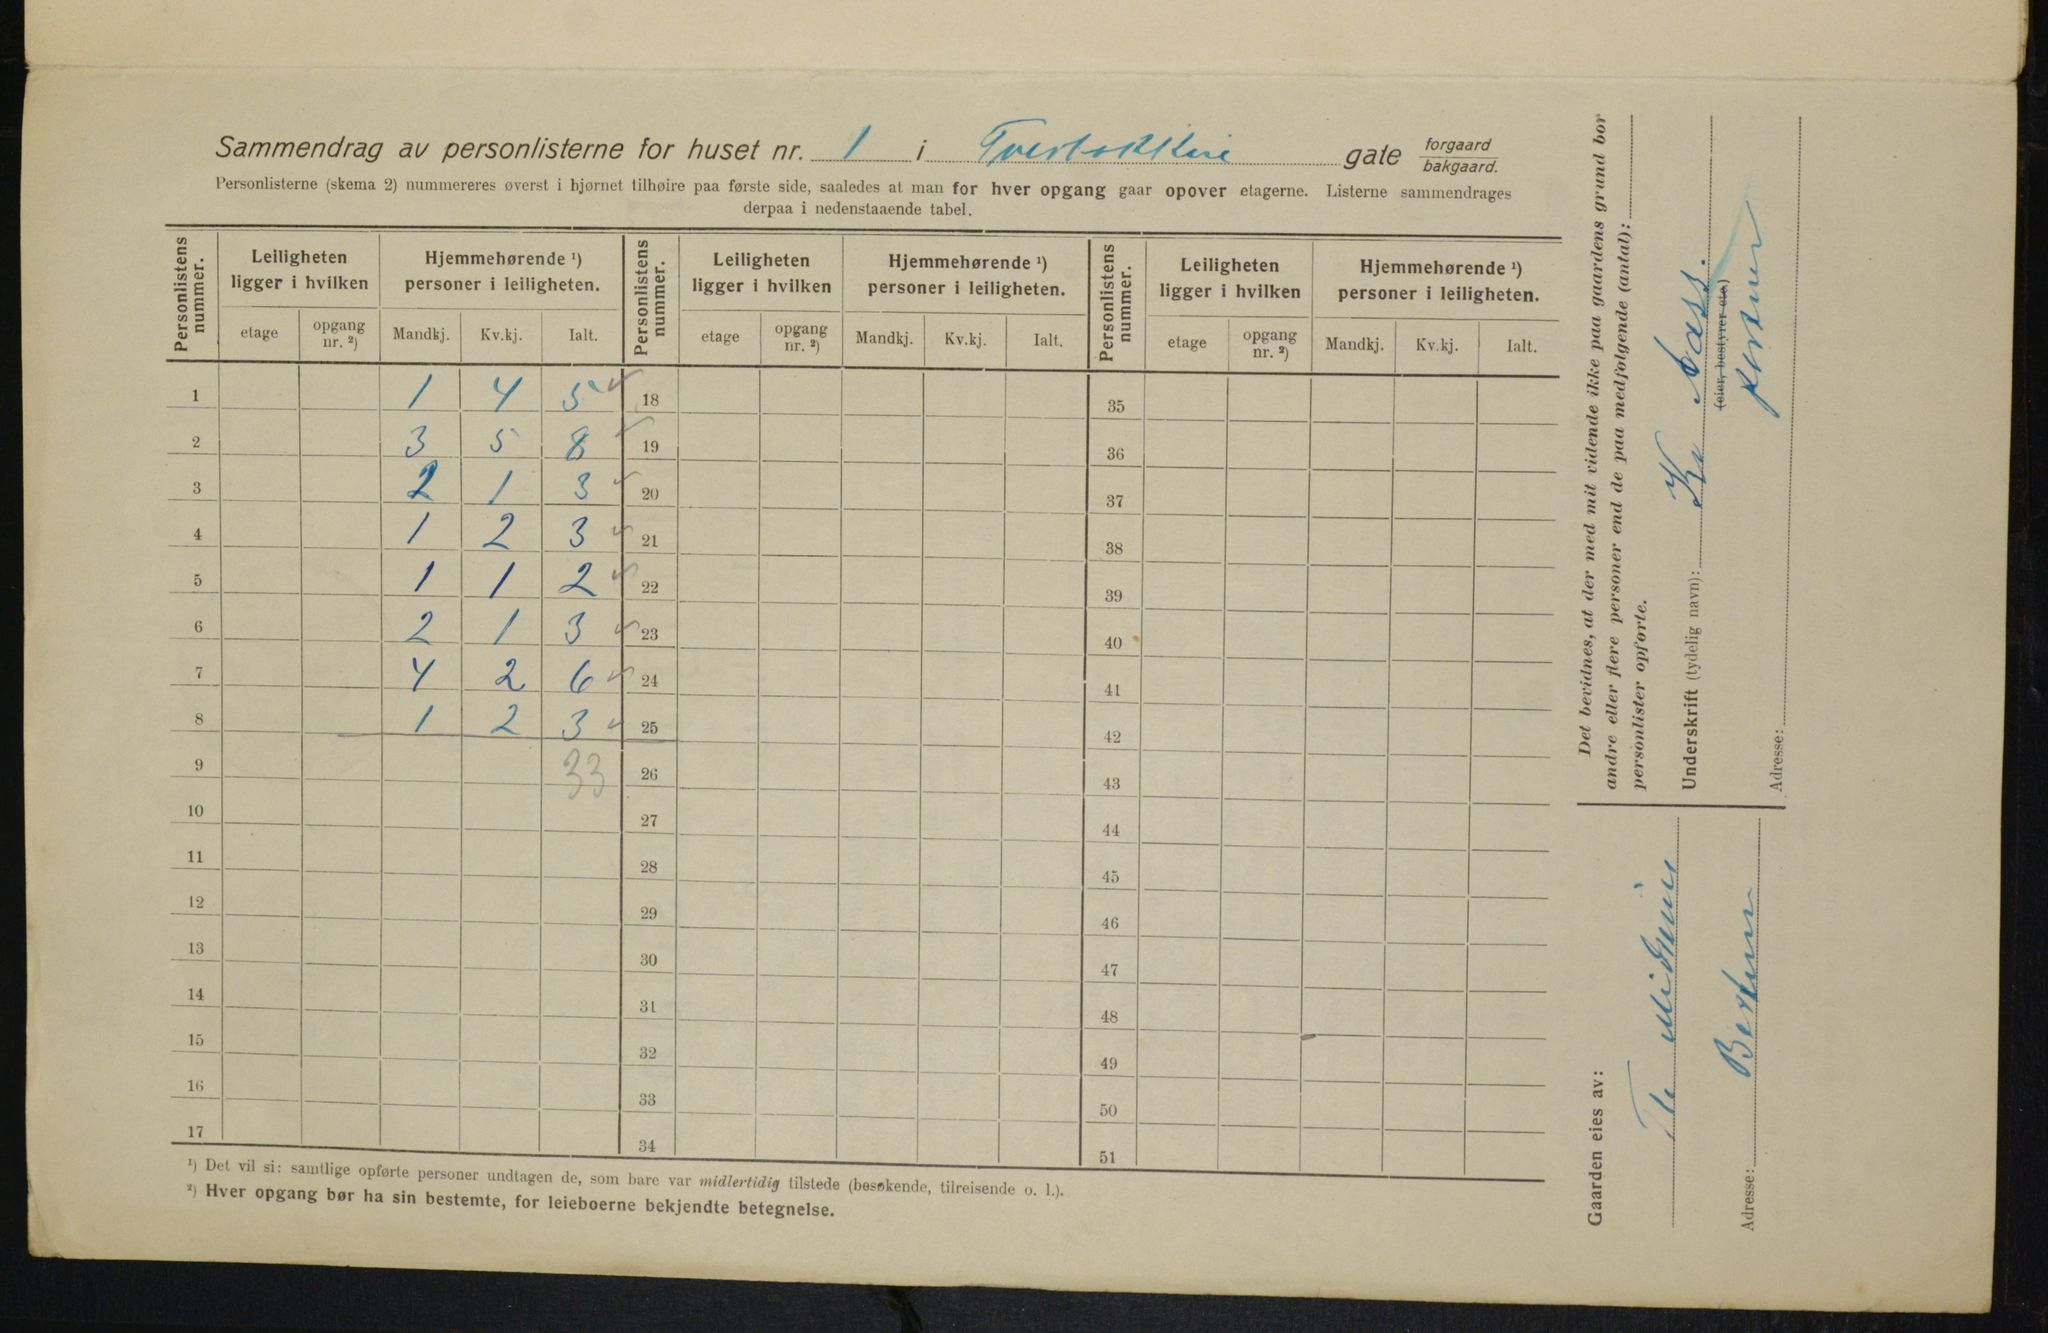 Sammendrag av personlisterne for huset nr. 1 i Tverbakken gate forgaard bakgaard.
Personlisterne (skema 2) nummereres øverst i hjørnet tilhøire paa første side, saaledes at man for hver opgang gaar opover etagerne. Listerne sammendrages
derpaa i nedenstaaende tabel.
Personlistens nummer. Leiligheten ligger i hvilken Hjemmehørende ¹) personer i leiligheten. Personlistens nummer. Leiligheten ligger i hvilken Hjemmehørende ¹) personer i leiligheten. Personlistens nummer. Leiligheten ligger i hvilken Hjemmehørende ¹) personer i leiligheten.
etage opgang nr. ²) Mandkj. Kv.kj. Ialt. etage opgang nr. ²) Mandkj. Kv.kj. Ialt. etage opgang nr. ²) Mandkj. Kv.kj. Ialt.
1 1 4 5 18 35
2 3 5 8 19 36
3 2 1 3 20 37
4 1 2 3 21 38
5 1 1 2 22 39
6 2 1 3 23 40
7 4 2 6 24 41
8 1 2 3 25 42
9 33 26 43
10 27 44
11 28 45
12 29 46
13 30 47
14 31 48
15 32 49
16 33 50
17 34 51
¹) Det vil si: samtlige opførte personer undtagen de, som bare var midlertidig tilstede (besøkende, tilreisende o. l.).
²) Hver opgang bør ha sin bestemte, for leieboerne bekjendte betegnelse.
Det bevidnes, at der med mit vidende ikke paa gaardens grund bor
andre eller flere personer end de paa medfølgende (antal):
personlister opførte.
Underskrift (tydelig navn): Næss.
(eier, bestyrer etc.)
Adresse:
Gaarden eies av:
Adresse: